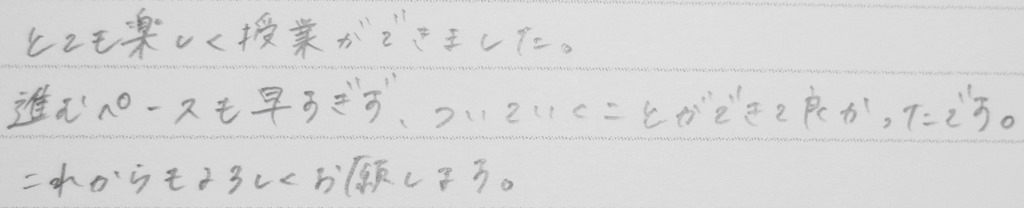 とても楽しく授業ができました。
進むペースも早すぎず、ついていくことができて良かったです。
これからもよろしくお願します。